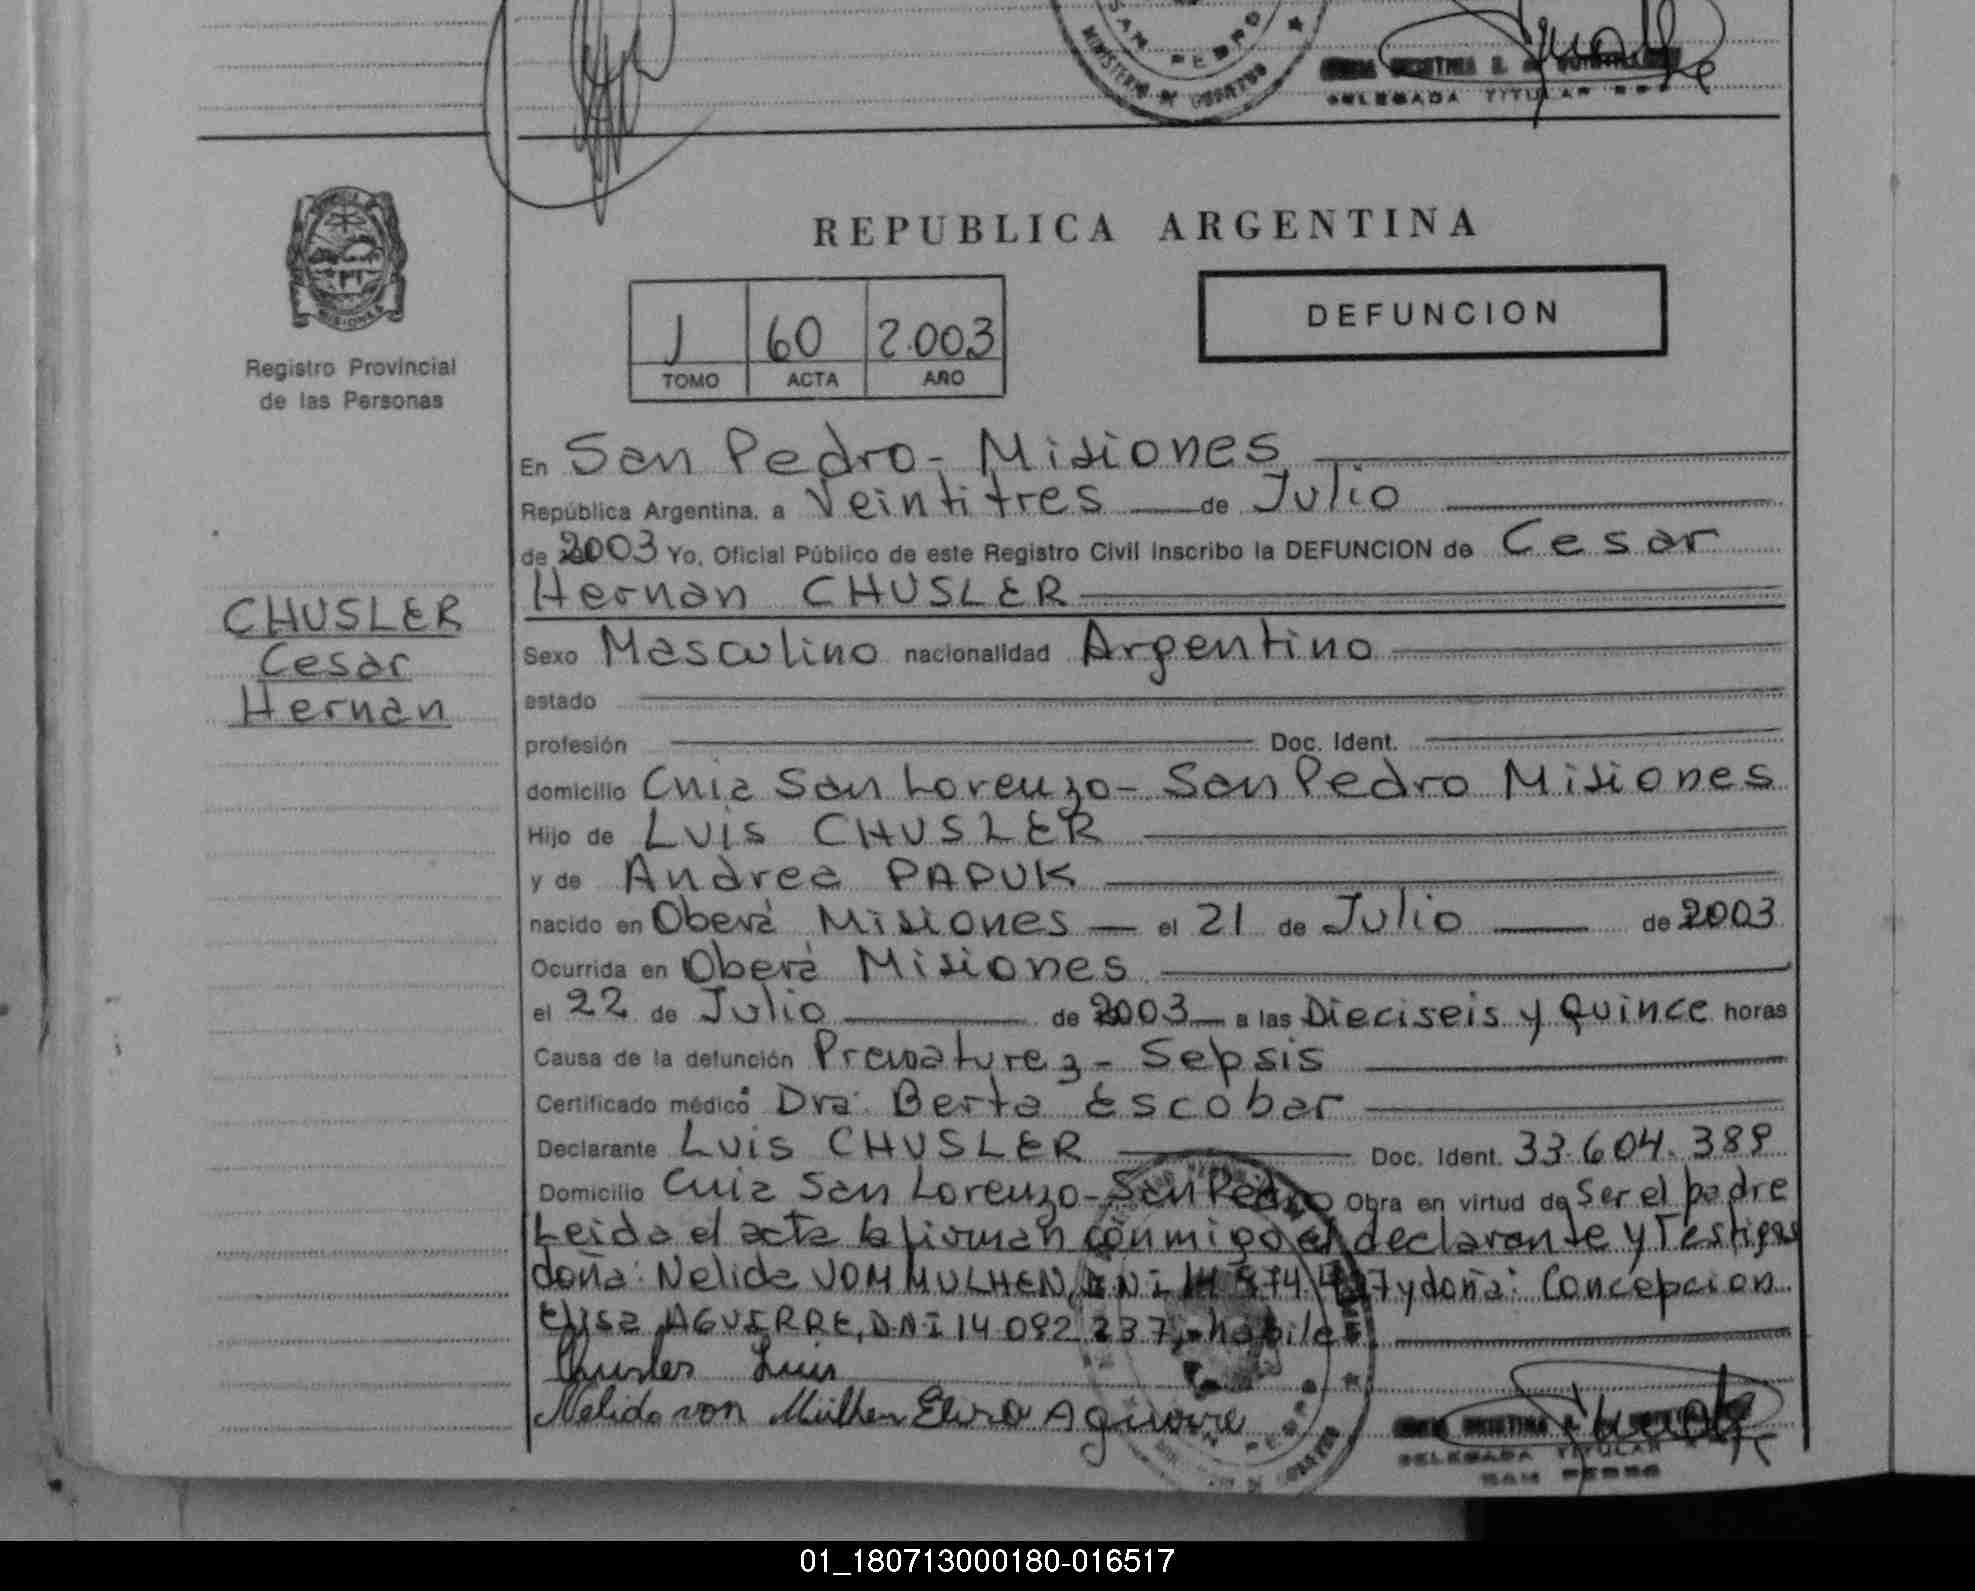 SAN PEDRO
MINISTERIO DE GOBIERNO
DELEGADA TITULAR
REPUBLICA ARGENTINA
MISIONES
Registro Provincial
de las Personas
1 60 2.003
TOMO ACTA AÑO
DEFUNCION
En San Pedro - Misiones
República Argentina, a Veintitres de Julio
de 2003 Yo, Oficial Público de este Registro Civil inscribo la DEFUNCION de Cesar
Hernan CHUSLER
CHUSLER
Cesar
Hernan
Sexo Masculino nacionalidad Argentino
estado
profesión Doc. Ident.
domicilio Cnia San Lorenzo - San Pedro Misiones
Hijo de Luis CHUSLER
y de Andrea PAPUK
nacido en Oberá Misiones el 21 de Julio de 2003
Ocurrida en Oberá Misiones
el 22 de Julio de 2003 a las Dieciseis y Quince horas
Causa de la defunción Prematurez - Sepsis
Certificado médico Dra: Berta Escobar
Declarante Luis CHUSLER Doc. Ident. 33.604.389
Domicilio Cnia San Lorenzo - San Pedro Obra en virtud de Ser el padre
Leida el acta la firman conmigo el declarante y Testigos
doña: Nelida VOM MULHEN, DNI y doña: Concepcion
Elisa AGUIRRE, D.N.I 14 092 237, habiles
Chusler Luis
Nelida von Mülhen Elisa Aguirre
DELEGADA TITULAR
SAN PEDRO
01_180713000180-016517